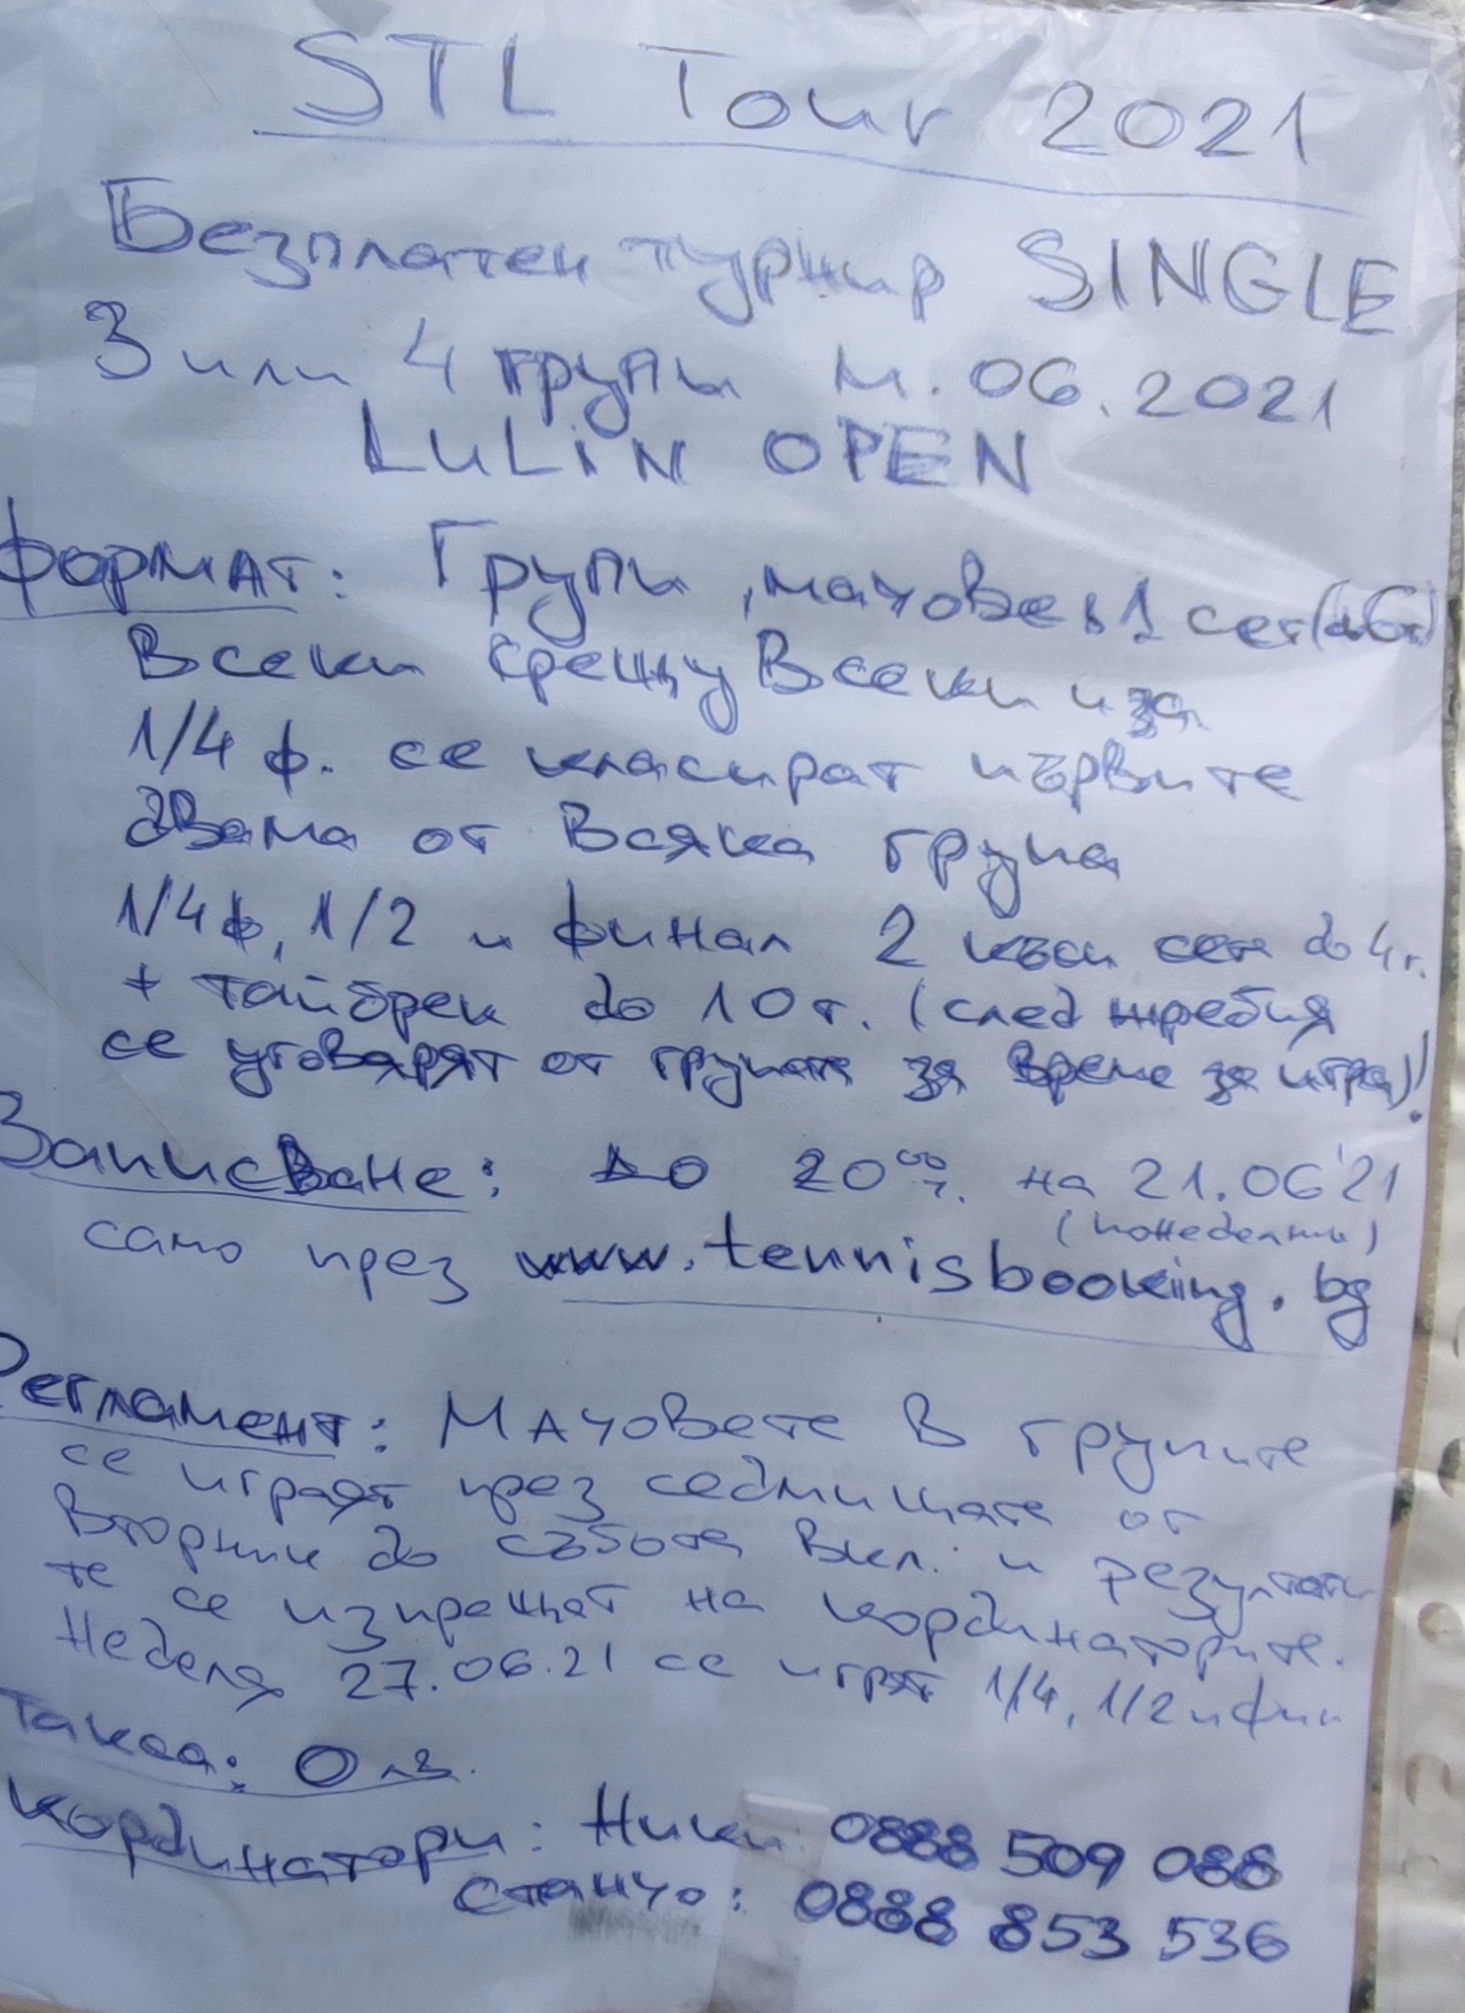 STL Tour 2021
Безплатен турнир SINGLE
3 или 4 групи м. 06.2021
LULIN OPEN
Формат: Групи, мачове в 1 сет (до 6г)
Всеки срещу Всеки и за
1/4 ф. се класират първите
двама от Всяка група
1/4ф, 1/2 и финал 2 къси сета до 4г.
+ тайбрек до 10т. (след жребия
се уговарят от групата за време за игра)!
Записване: До 20⁰⁰ч. на 21.06'21
(понеделник)
само през www.tennisbooking.bg
Регламент: Мачовете в групите
се играят през седмицата от
Вторник до събота вкл. и резултати
те се изпращат на кординаторите.
Неделя 27.06.21 се играят 1/4, 1/2 и фин
Такса: 0 лв.
Кординатори: Ники: 0888 509 088
Станчо: 0888 853 536